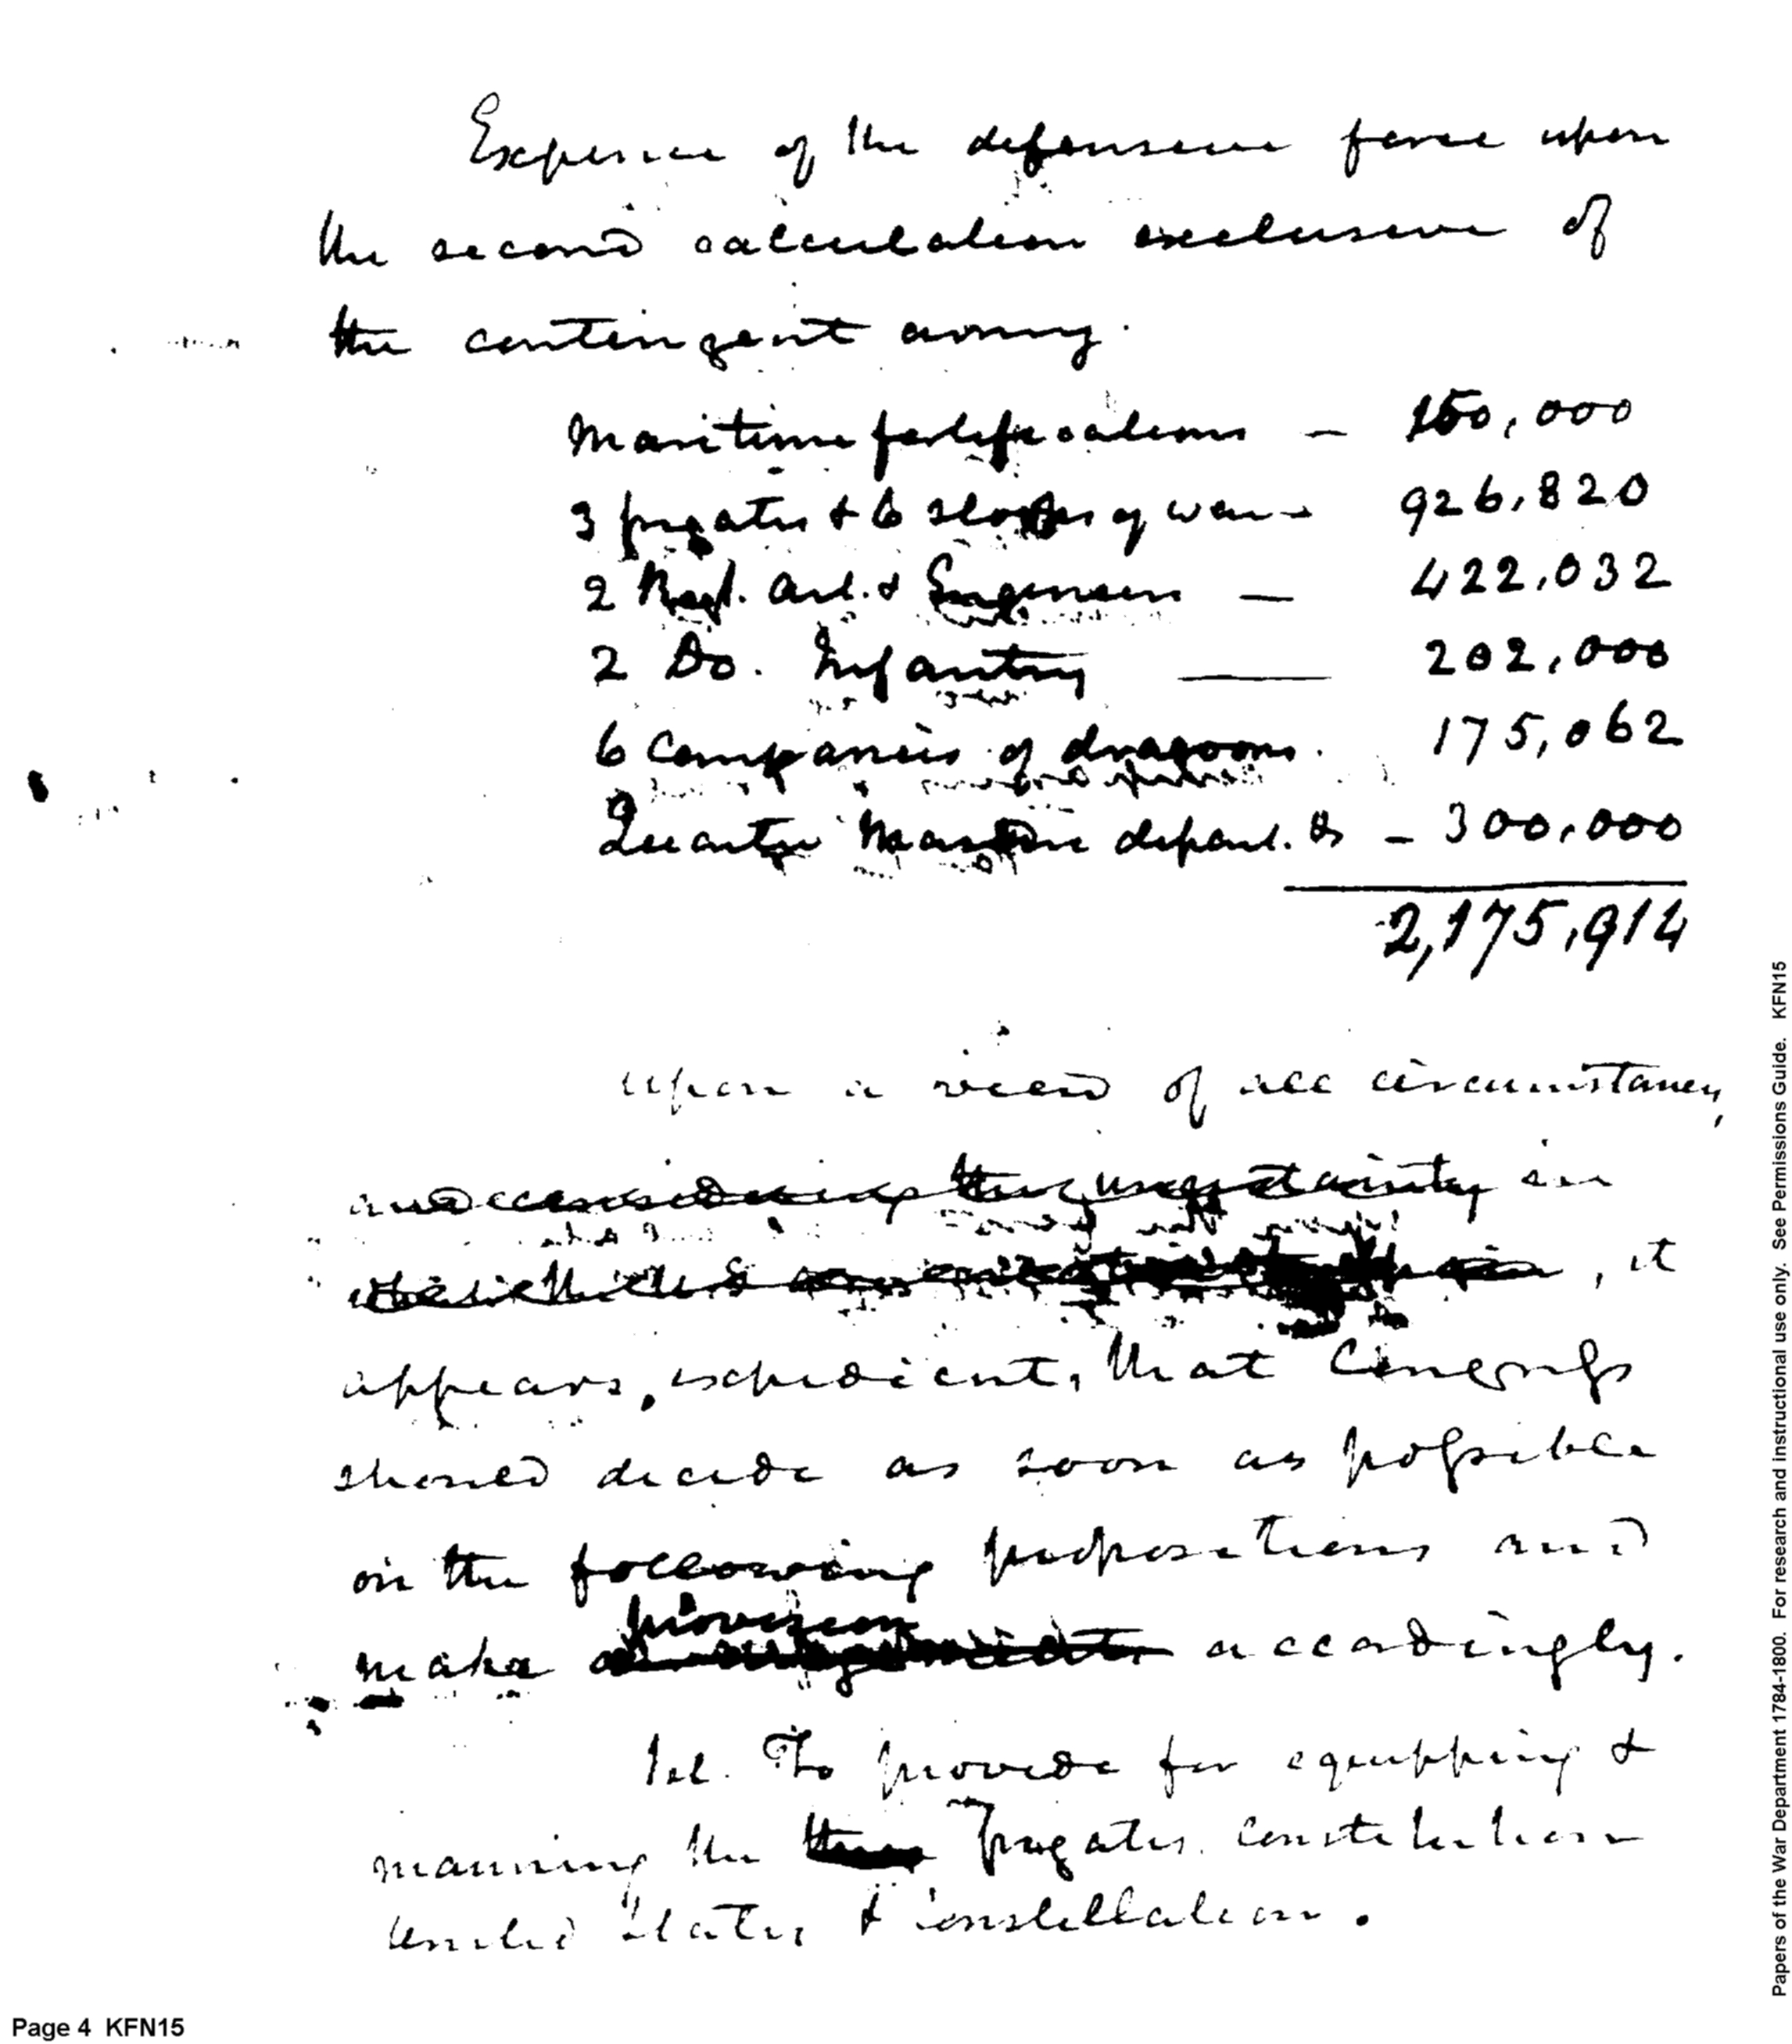 Expence of the defensive force upon
the second calculation exclusive of
the contingent army.
Maritime fortifications — 150,000
3 frigates & 6 sloops of war — 926,820
2 Regt. Art. & Engineers — 422,032
2 Do. Infantry — 202,000
6 Companies of dragoons. 175,062
Quarter Master depart. &c — 300,000
2,175,914
upon a view of all circumstances,
and considering the uncertainty in
which, it
appears, expedient, that Congress
should decide as soon as possible
on the following propositions and
provision
make arrangements accordingly.
1st. To provide for equipping &
manning the three Frigates Constitution
United States & Constellation.
Page 4 KFN15
Papers of the War Department 1784-1800. For research and instructional use only. See Permissions Guide. KFN15